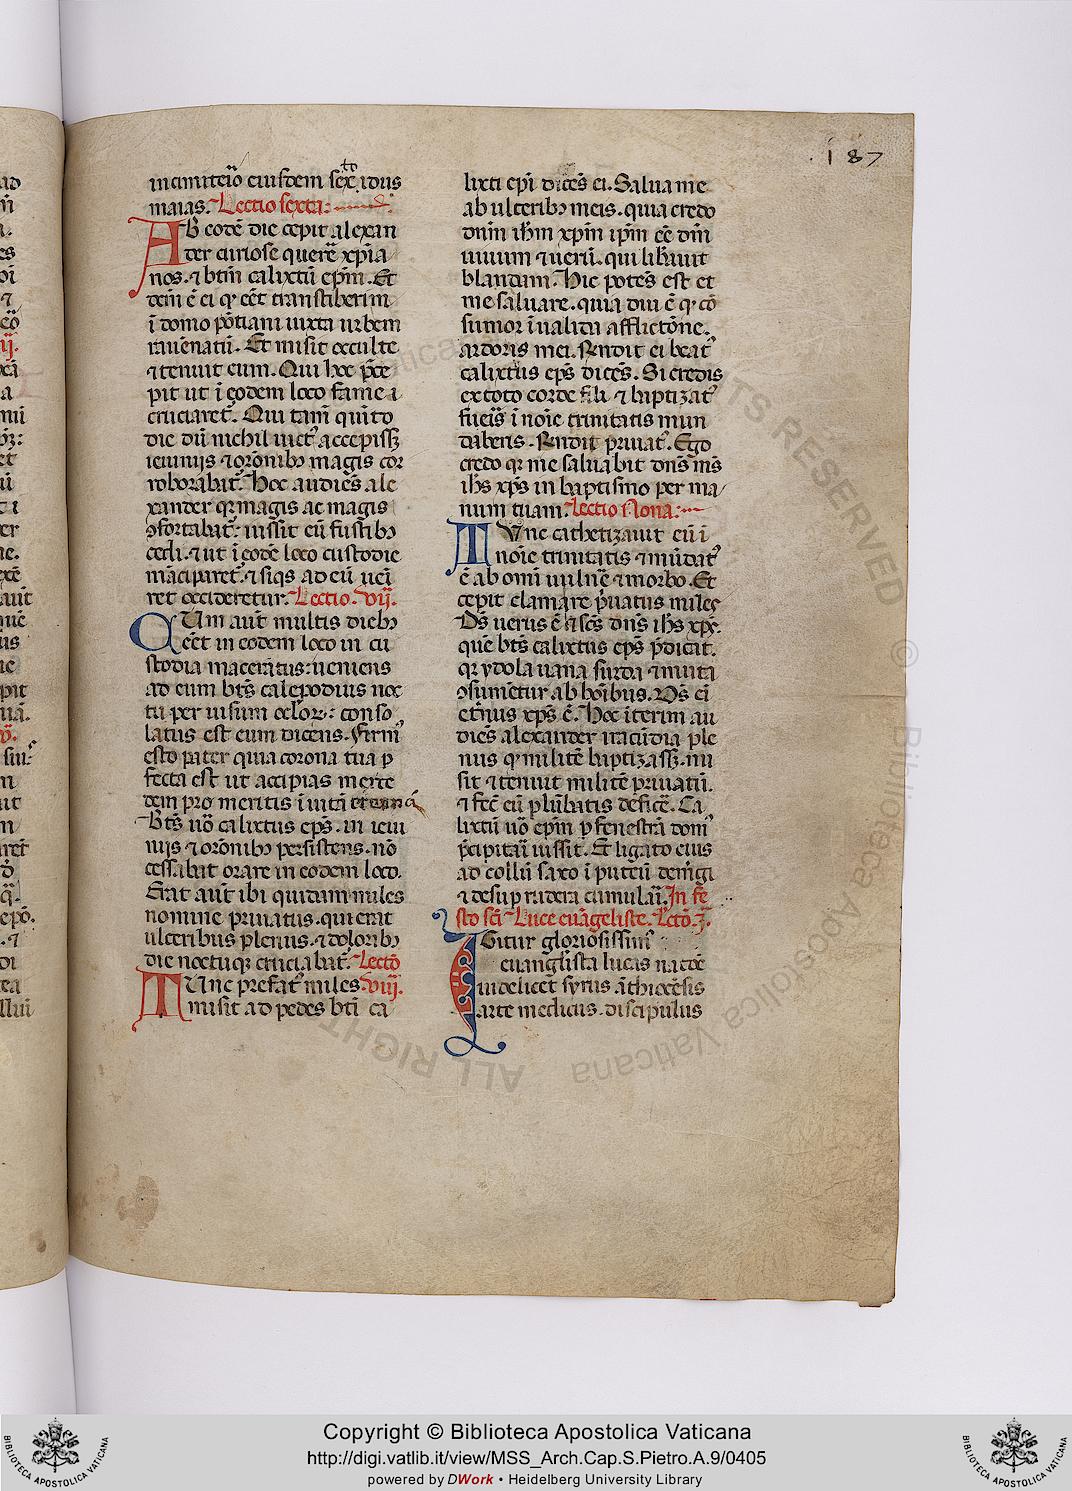 .187
in cimiteio eiusdem sexto idus
maias. Lectio sexta:
Ab eodē die cepit alexan
der curiose querē xp̄ia
nos. ⁊ btm̄ calixtū ep̄m. Et
dcm̄ ē ei qꝛ eēt transtiberim
ī domo pōtiani iuxta urbem
rauēnatū. Et misit occulte
⁊ tenuit eum. Qui hoc p̄ce
pit ut ī eodem loco fame
cruciaretᷣ. Qui tam̄ quīto
die dū nichil uictꝰ accepissꝫ
ieiunijs ⁊ orōnibꝫ magis cor
roborabatᷣ. Hoc audiēs ale
xander qꝛ magis ac magis
ꝯfortabatᷣ: iussit eū fustibꝫ
cedi. ⁊ ut ī eodē loco custodie
mācīparetᷣ. ⁊ siqs ad eū ueī
ret occideretur. Lectio. vij.
Cum aut̄ multis diebꝫ
eēt in eodem loco in cu
stodia maceratus: ueniens
ad eum bt̄s calepodius noc
tu per uisum consolatus
latus est eum dicens. Firmꝰ
esto pater quia corona tua ꝑ
fecta est ut accipias merce
dem pro meritis ī uitā eternā
Bt̄s uō calixtus ep̄s. in ieiu
niis ⁊ orōnibꝫ persistens. nō
cessabat orare in eodem loco.
Erat aut̄ ibi quidam miles
nomine priuatus. qui erat
ulceribus plenus. ⁊ doloribꝫ
die noctuqꝫ cruciabatᷣ. Lectō
Tunc prefatꝰ miles. viij.
misit ad pedes bt̄i ca
lixti ep̄i dicēs ei. Salua me
ab ulceribꝫ meis. quia credo
dn̄m ih̄m xp̄m ip̄m eē dm̄
uiuum ⁊ uerū. qui liberauit
blandam. Hic potēs est et
me saluare. quia diu ē qꝛ cō
sumor ī ualida afflictōne.
ardoris mei. Rn̄dit ei beatꝰ
calixtus ep̄s dicēs. Si credis
ex toto corde ⁊ baptizatꝰ
fueīs ī noīe trinitatis mun
daberis. Rn̄dit priuatꝰ. Ego
credo qꝛ me saluabit dn̄s m̄s
ih̄s xp̄s in baptismo per ma
num tuam. Lectio Nona:
Tunc cathetizauit eū ī
noīe trinitatis ⁊ mūdatꝰ
ē ab omī uulnē ⁊ morbo. Et
cepit clamare p̄uatus miles
Ds̄ uerus ē ⁊ sc̄s dn̄s ih̄s xp̄s.
quē bt̄s calixtus ep̄s p̄dicat.
qꝛ ydola uana surda ⁊ muta
ꝯsumētur ab hoībus. Ds̄ eī
et̄nus xp̄s ē. Hoc īterim au
diēs alexander iracūdia ple
nus qꝛ militē baptizassꝫ. mi
sit ⁊ tenuit militē priuatū.
⁊ fec̄ eū plūbatis dēficē. Ca
lixtū uō ep̄m ꝑ fenestrā domꝰ
p̄cipitari iussit. Et ligato eius
ad collū saxo ī puteū demgi
⁊ desuꝑ rudera cumulari. In fe
sto sc̄i Luce euāgeliste. Lectō. j.
Igitur gloriosissimꝰ
euanglīsta lucas natōe
uidelicet syrus āthiocēsis
arte medicus. discipulus
Copyright © Biblioteca Apostolica Vaticana
http://digi.vatlib.it/view/MSS_Arch.Cap.S.Pietro.A.9/0405
powered by DWork • Heidelberg University Library